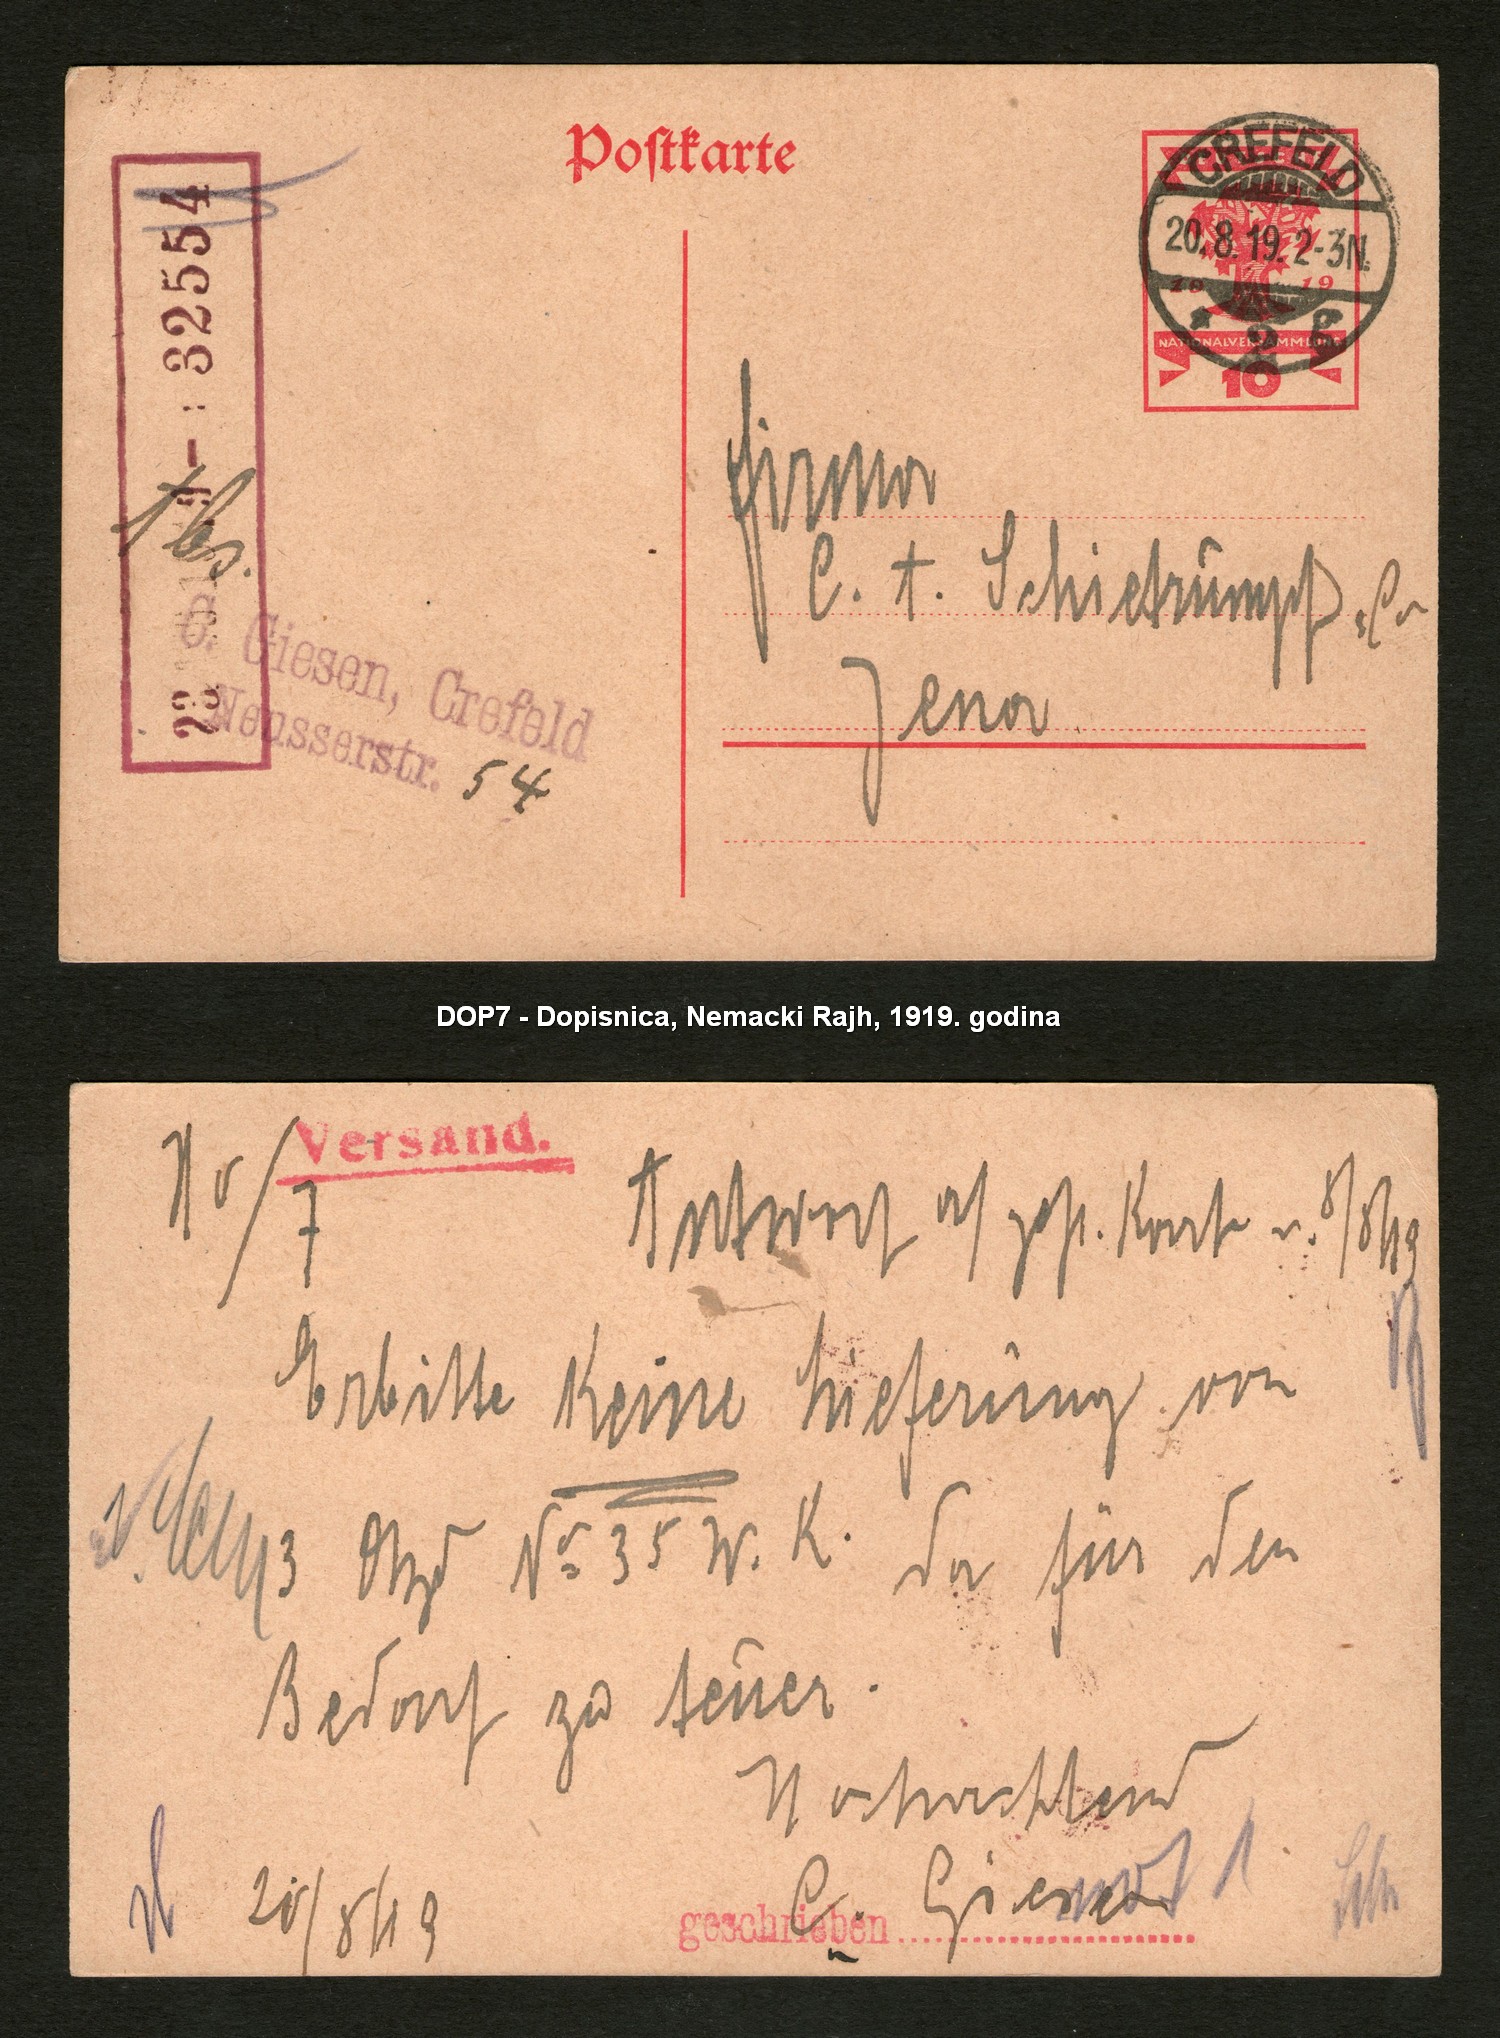 Postkarte
CREFELD
20.8.19. 2-3N.
* 2
1919
NATIONALVERSAMMLUNG
10
32554
Abs.
C. Giesen, Crefeld
Neusserstr. 54
Firma
C. + Schietrumpf & Co
Jena
DOP7 - Dopisnica, Nemacki Rajh, 1919. godina
Versand.
No/7
Antwort a/ gesch. Karte v. 8/8/19
Erbitte Keine Lieferung von
3 Dtzd No 35 W. K. da für den
Bedarf zu teuer.
Hochachtend
C. Giesen
20/8/19
geschrieben